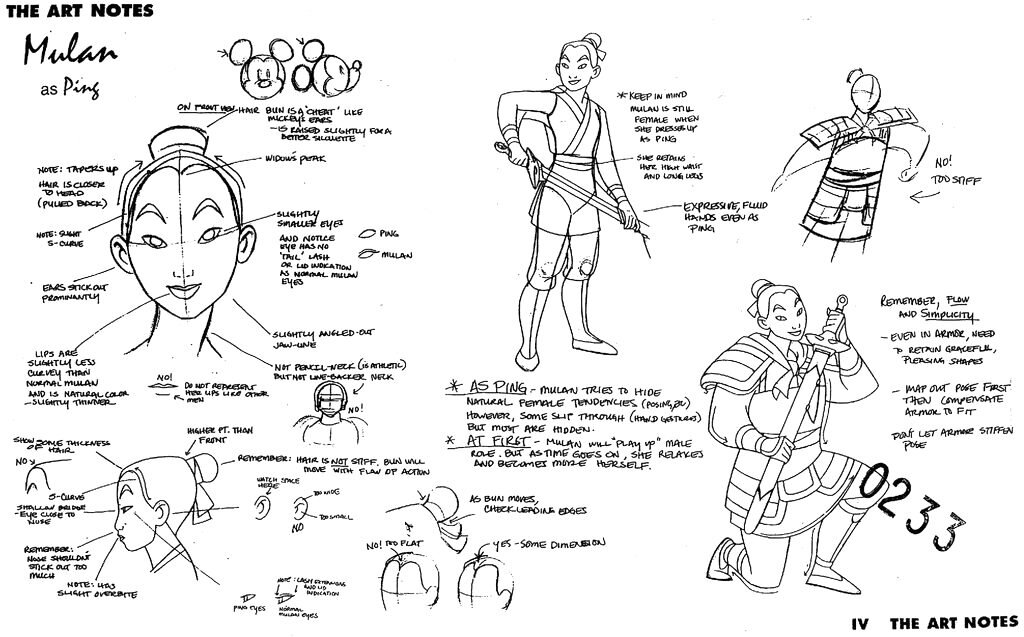 THE ART NOTES
Mulan
as Ping
ON FRONT VIEW HAIR BUN IS A "CHEAT" LIKE
MICKEY'S EARS
- IS RAISED SLIGHTLY FOR A
BETTER SILHOUETTE
WIDOW'S PEAK
NOTE: TAPERS UP
HAIR IS CLOSER
TO HEAD
(PULLED BACK)
NOTE: SLIGHT
S-CURVE
EARS STICK OUT
PROMINANTLY
SLIGHTLY
SMALLER EYES
AND NOTICE
EYE HAS NO
'TAIL' LASH
OR LID INDICATION
AS NORMAL MULAN
EYES
PING
MULAN
SLIGHTLY ANGLED-OUT
JAW-LINE
NOT PENCIL-NECK (IS ATHLETIC)
BUT NOT LINE-BACKER NECK
NO!
LIPS ARE
SLIGHTLY LESS
CURVEY THAN
NORMAL MULAN
AND IS NATURAL COLOR
- SLIGHTLY THINNER
NO!
DO NOT REPRESENT
HER LIPS LIKE OTHER
MEN
* KEEP IN MIND
MULAN IS STILL
FEMALE WHEN
SHE DRESSES UP
AS PING
SHE RETAINS
HER HIGH WAIST
AND LONG LEGS
EXPRESSIVE, FLUID
HANDS EVEN AS
PING
NO!
TOO STIFF
REMEMBER, FLOW
AND SIMPLICITY
- EVEN IN ARMOR, NEED
TO RETAIN GRACEFUL,
PLEASING SHAPES
- MAP OUT POSE FIRST
THEN COMPENSATE
ARMOR TO FIT
DON'T LET ARMOR STIFFEN
POSE
* AS PING - MULAN TRIES TO HIDE
NATURAL FEMALE TENDENCIES (POSING, ETC)
HOWEVER, SOME SLIP THROUGH (HAND GESTURES)
BUT MOST ARE HIDDEN.
* AT FIRST - MULAN WILL "PLAY UP" MALE
ROLE. BUT AS TIME GOES ON, SHE RELAXES
AND BECOMES MORE HERSELF.
SHOW SOME THICKNESS
OF HAIR
NO
S-CURVE
SHALLOW BRIDGE
- EYE CLOSE TO
NOSE
REMEMBER:
NOSE SHOULDN'T
STICK OUT TOO
MUCH
NOTE: HAS
SLIGHT OVERBITE
HIGHER PT. THAN
FRONT
REMEMBER: HAIR IS NOT STIFF, BUN WILL
MOVE WITH FLOW OF ACTION
WATCH SPACE
HERE
TOO WIDE
TOO SMALL
NO
NOTE: LASH EXTENSIONS
AND LID
INDICATION
PING EYES
NORMAL
MULAN EYES
AS BUN MOVES,
CHECK LEADING EDGES
NO! TOO FLAT
YES - SOME DIMENSION
0233
IV THE ART NOTES